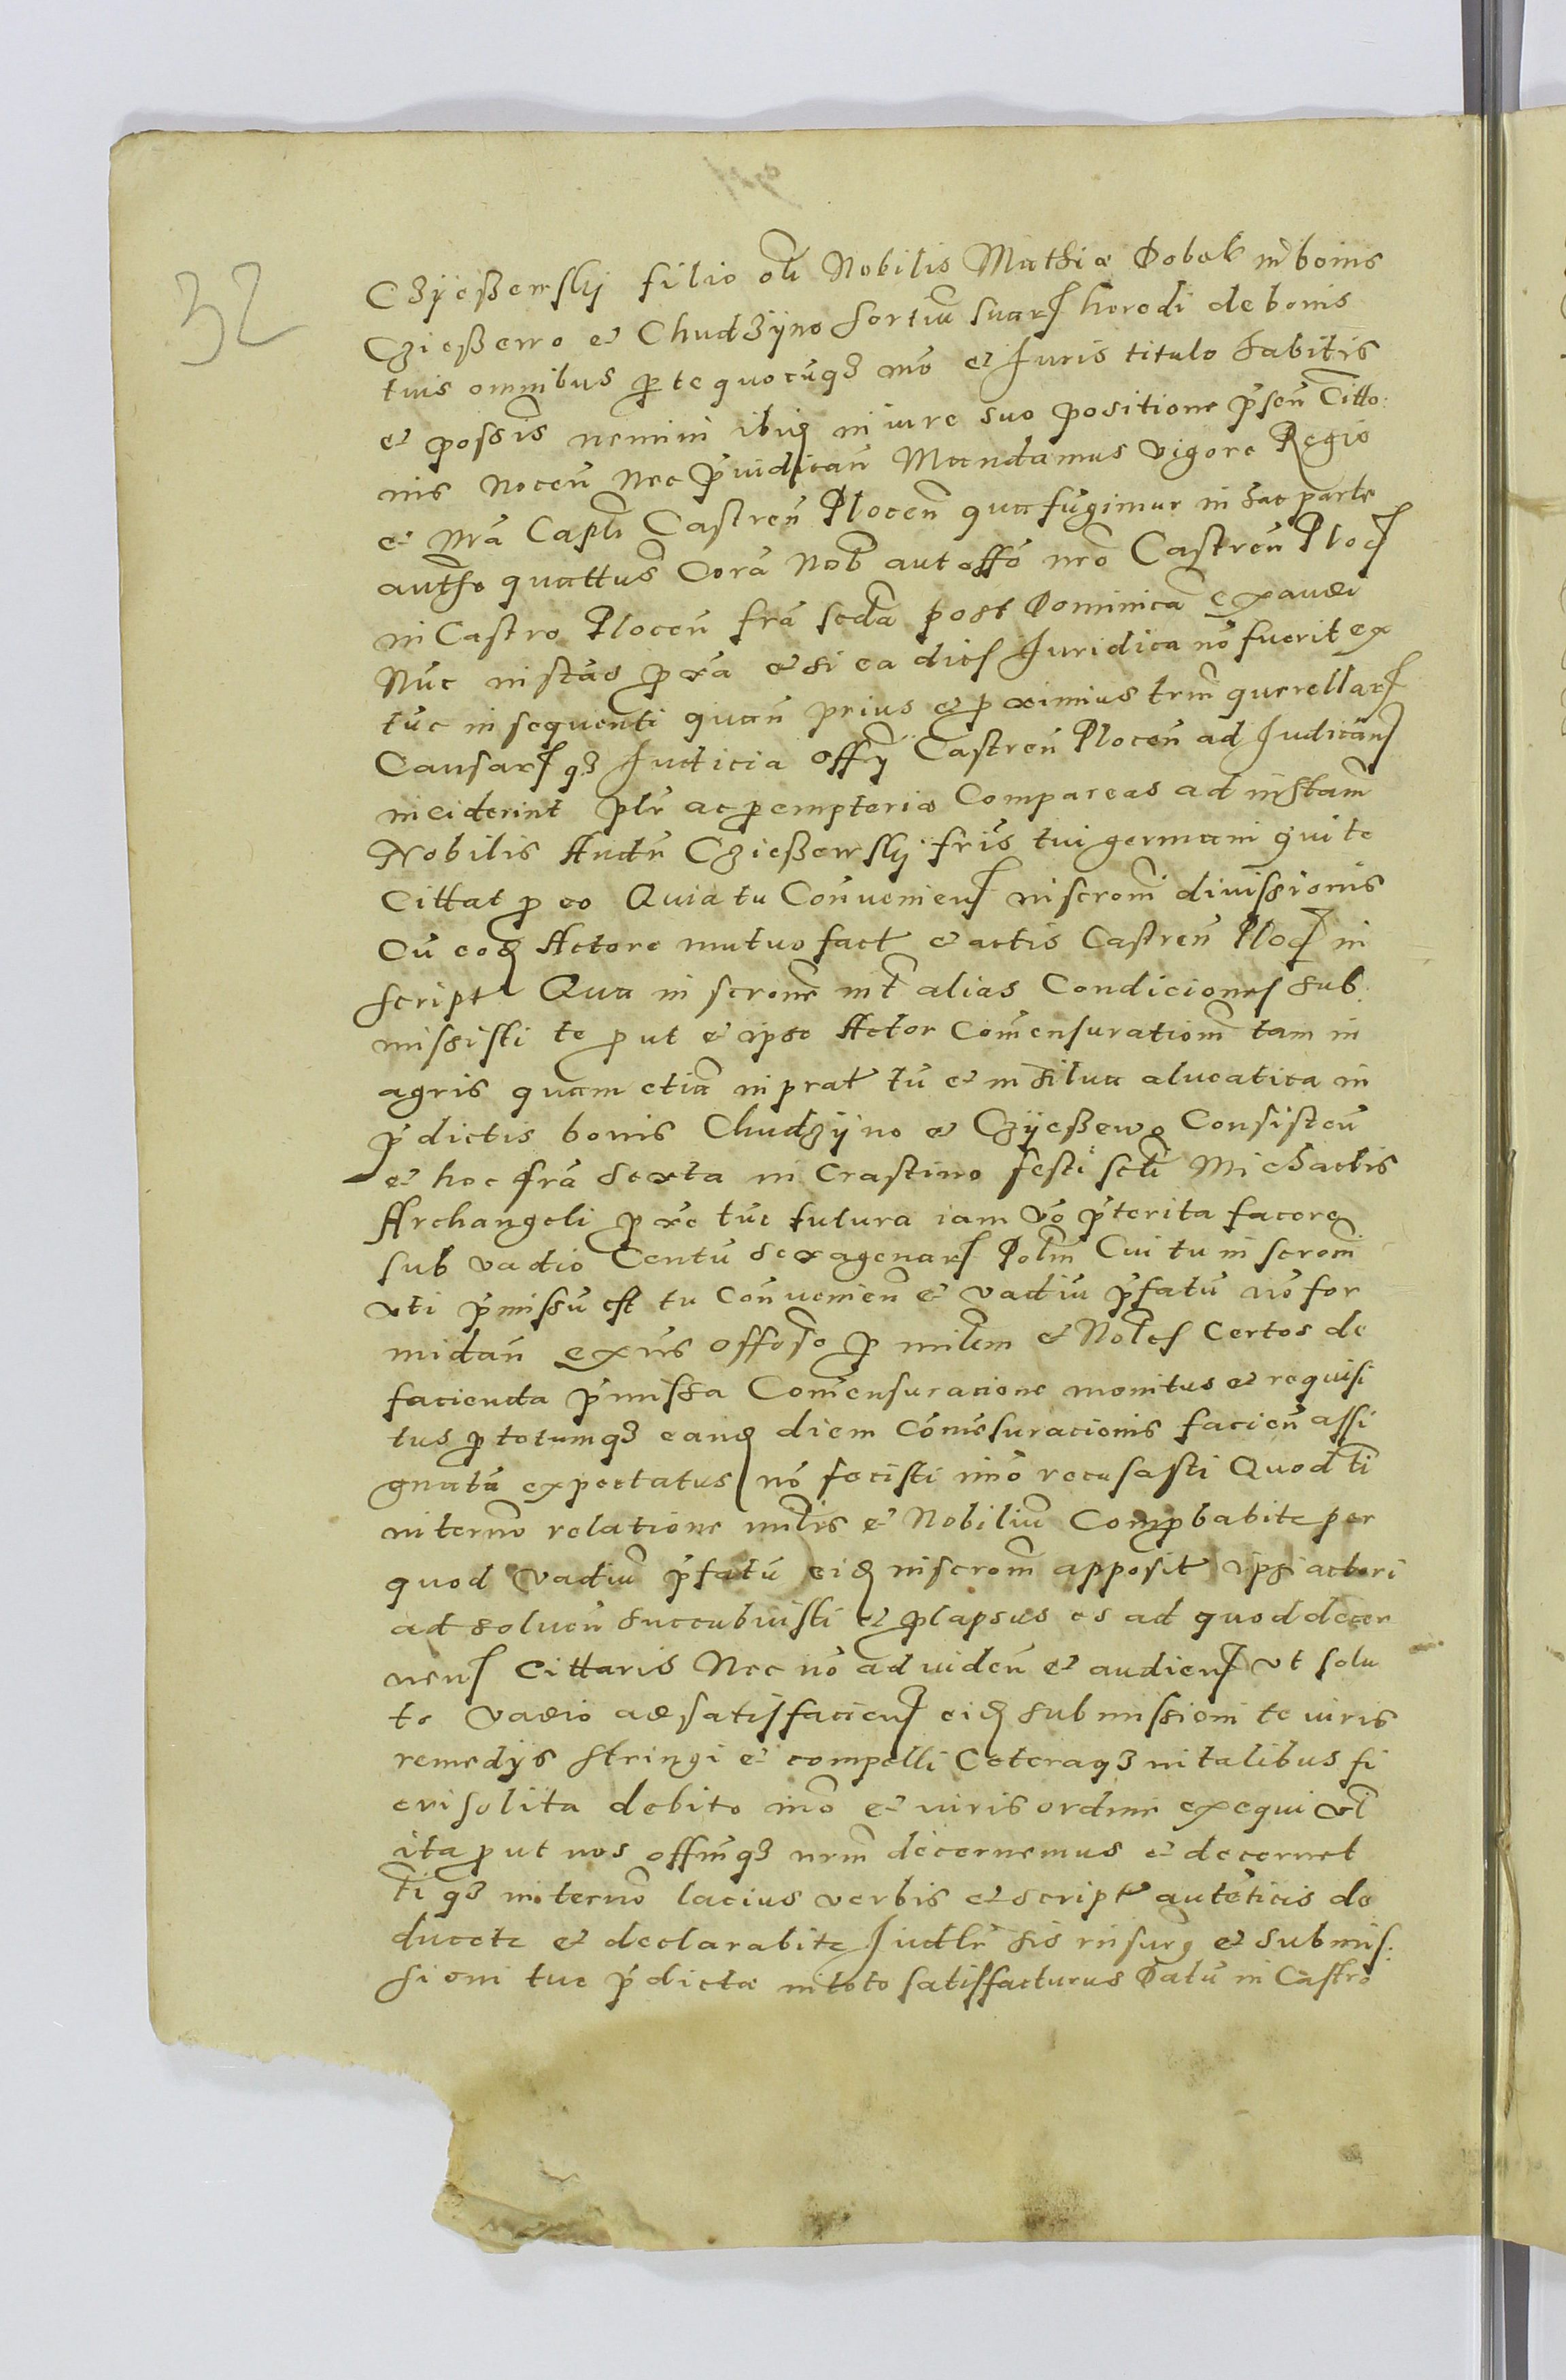 32
Cżÿeßewskÿ filio oĺi Nobilis Mathiæ Dobek in bonis
Czießewo et Chudzÿno sortiū suarꝝ heredi de bonis
tuis omnibus ꝑ te quocūqꝫ mō et Iuris titulo habitis
et possīs nemini ibiꝺ in iure suo positione p̄sen̄ Citto:
nis nocen̄ nec p̄iudican̄ Mandamus vigore Regio
et nr̄a Capl̄i Castren̄ Plocen̄ qua fūgimur in hac parte
autho quattus Corā Nob̄ aut offō nrō Castren̄ Plocꝭ
in Castro Plocen̄ frā scdā post Dominicā exaudi
Nūc instās ꝓxa et si ea dies Iuridica nō fuerit ex
tūc in sequenti quan̄ prius et ꝓximius trm̄ querellarꝝ
Causarꝝqꝫ Iudicia offÿ Castren̄ Plocen̄ ad Iudicān
inciderint plr̄ ac ꝑemptorie Compareas ad instam̄
Nobilis Andr̄ Czießewskÿ fris̄ tui germani qui te
Cittat ꝓ eo Quia tu Conveniens inscrōni divissionis
Cū eoꝺ Actore mutuo fact et actis Castren̄ Plocꝭ in
script Qua inscrōne int̄ alias Condiciones sub:
missisti te ꝓut et ipse Actor Comensurationē tam in
agris quam etiā in prat tū et in silua alucatica in
p̄dictis bonis Chudzÿno et Czÿeßewo Consisten̄
et hoc frā sexta in Crastino festi scti Michaelis
Archangeli ꝓxe tūc futura iam vō p̄terita facere
sub vadio Centū sexagenarꝝ Polm̄ Cui tu inscrōni
vti p̄missū est tu Convenien̄ et vadiū p̄fatū nō for
midan̄ exn̄s offōse ꝑ milem et Nobles certos de
facienda p̄missa Comensuracione monitus et requisi
tus ꝑ totumqꝫ eanꝺ diem Cōmēsuracionis facien̄ assi
gnatā expectatus nō fecisti imō recusasti Quod ti
in termō relatione milis et Nobiliū Comꝓbabit per
quod vadiū p̄fatū eiꝺ inscrōni apposit ipsi actori
ad solven̄ succubuisti et ꝓlapsus es ad quod decer
nenꝭ Cittaris Nec nō ad viden̄ et audienꝭ vt solu
to vadio ad satisfacienꝭ eiꝺ submissioni te viris
remedÿs stringi et compelli Ceteraqꝫ in talibus fi
eri solita debito mō et iuris ordine exequi vl
ita ꝓut nos offm̄qꝫ nrm̄ decernemus et decernet
tiqꝫ in termō lacius verbis et script autēticis de
ducet et declarabit Iudlr̄ sis rn̄surꝯ et submis:
sioni tue p̄dictæ in toto satisfacturus Datū in Castro